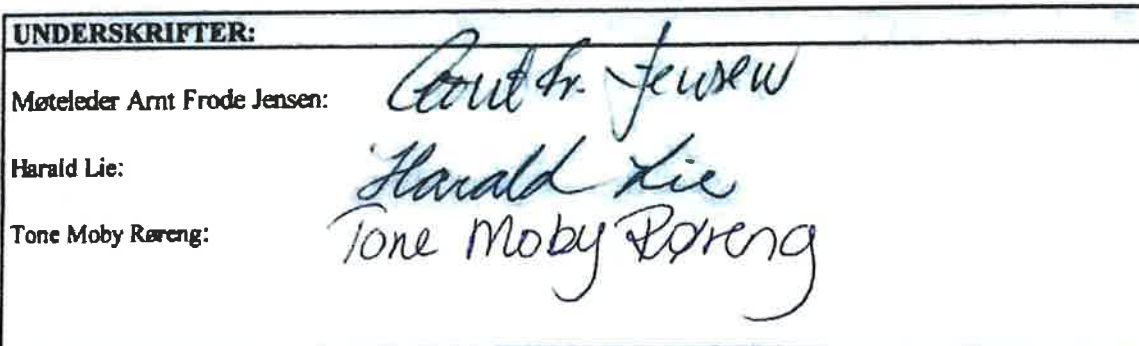 UNDERSKRIFTER:
Møteleder Arnt Frode Jensen: Arnt Fr. Jensen
Harald Lie: Harald Lie
Tone Moby Røreng: Tone Moby Røreng